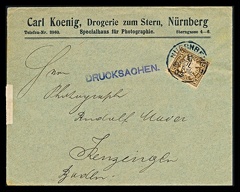 Carl Koenig, Drogerie zum Stern, Nürnberg
Telefon-Nr. Sterngasse 4-6.
Spezialhaus für Photographie.
DRUCKSACHEN.
Herrn
Photograph
Rudolf Mayer
Kenzingen
Baden